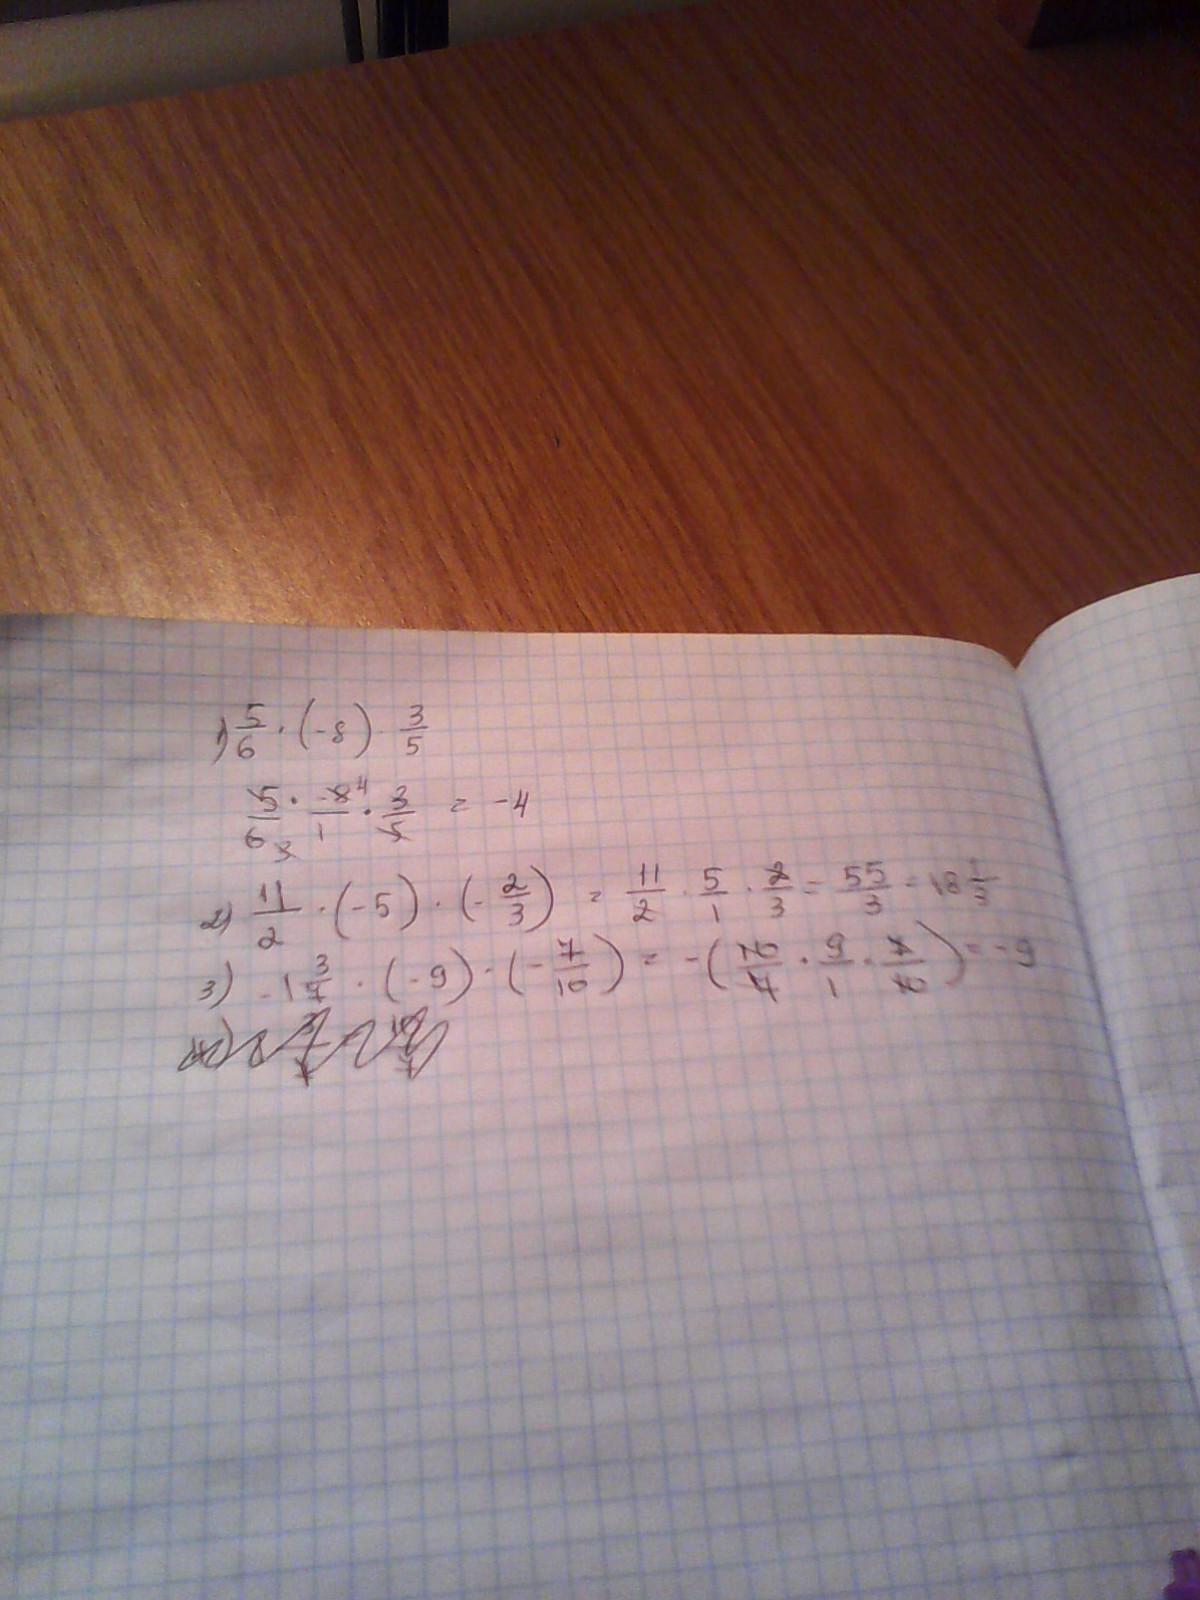 1) 5/6 · (-8) · 3/5
5/6 3 · -8 4/1 · 3/5 = -4
2) 11/2 · (-5) · (-2/3) = 11/2 · 5/1 · 2/3 = 55/3 = 18 1/3
3) -1 3/7 · (-9) · (-7/10) = -(10/7 · 9/1 · 7/10) = -9